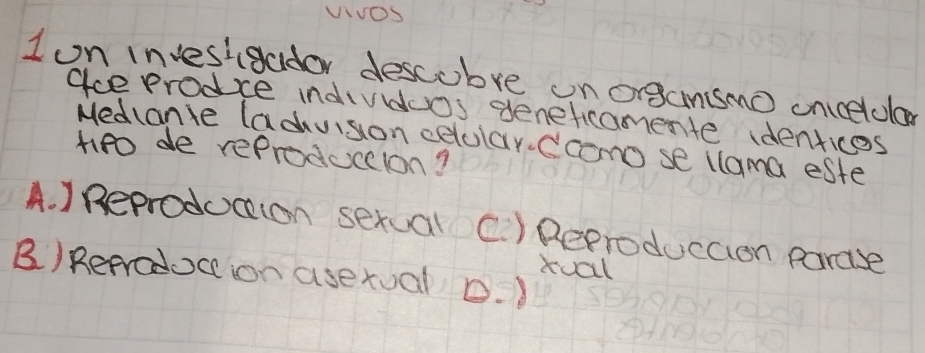 vivos
1 un investigador descubre un organismo unicelular
que produce individuos geneticamente identicos
Mediante la division celular. ¿como se llama este
tipo de reproduccion?
A.) Reproduccion sexual C.) Reproduccion parase
xual
B.) Reproduccion asexual D.)